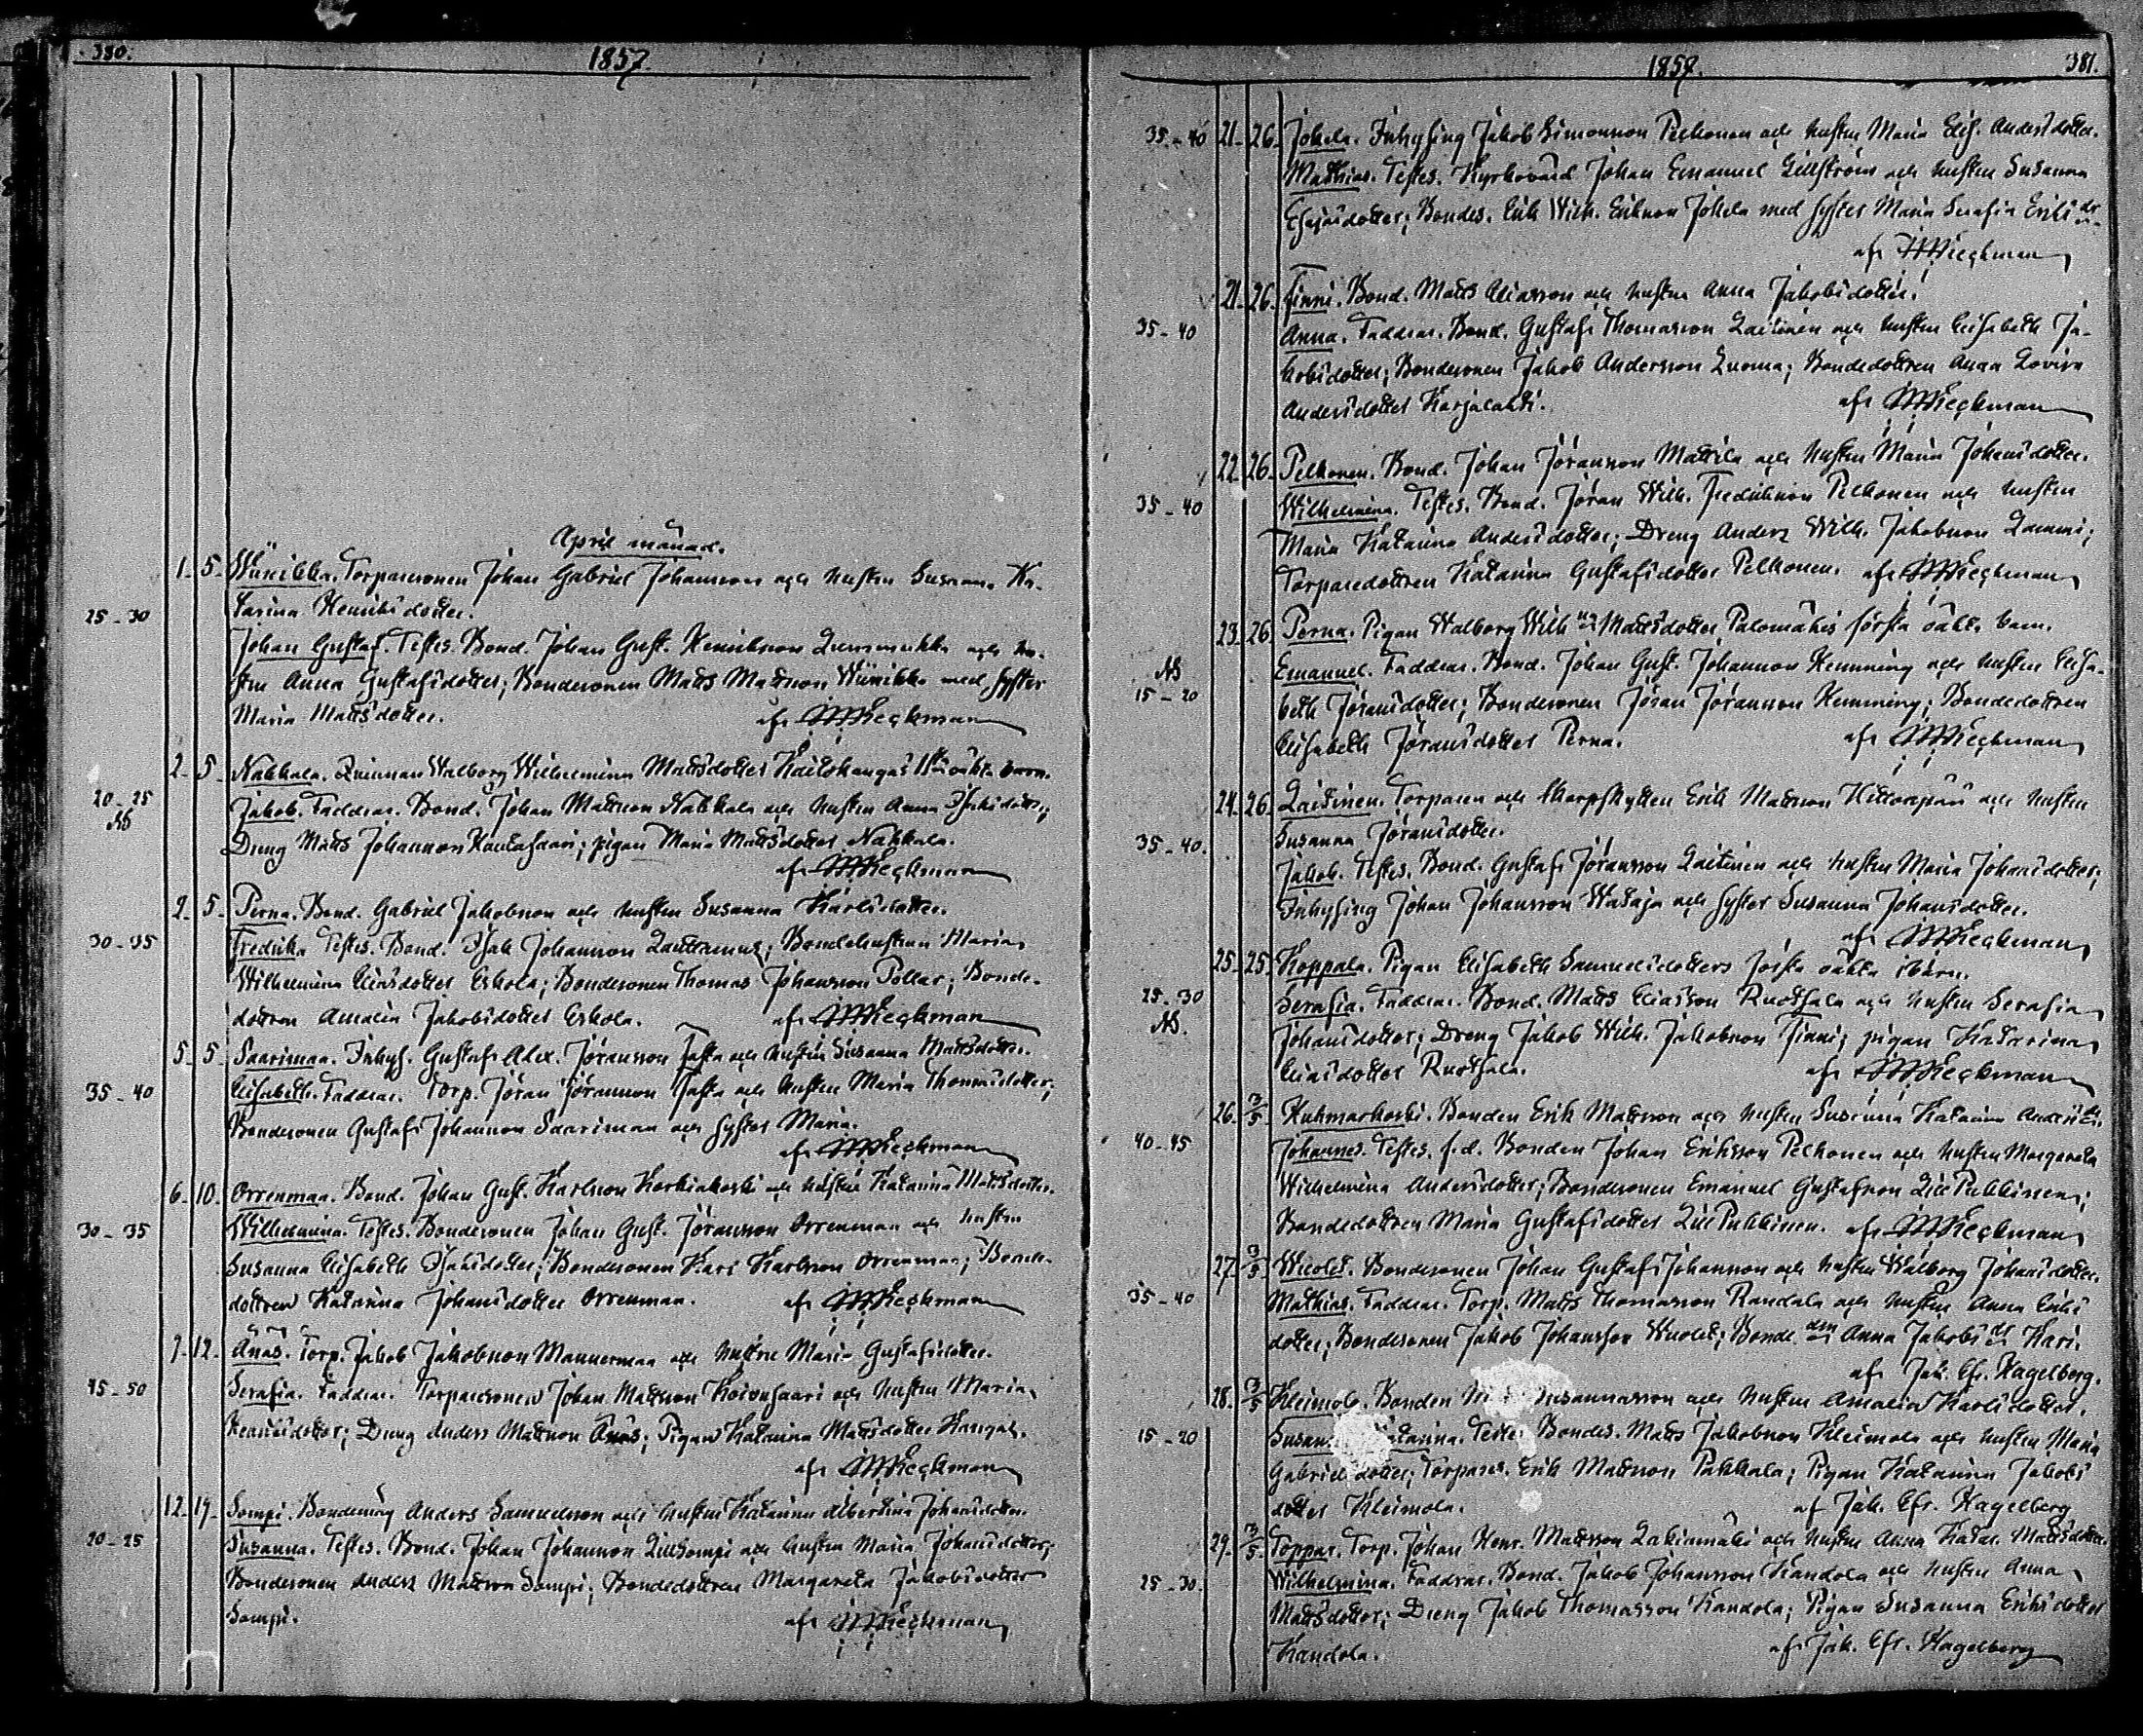 380.
1857.
April månad.
1. 5. Wünikka. Torparesonen Johan Gabriel Johansson och hustru Susanna Ka-
25-30 tarina Henriksdotter.
Johan Gustaf. Testes. Bond. Johan Gust. Henriksson och hu-
stru Anna Gustafsdotter; Bondesonen Matts Mattsson Wünikka med syster
Maria Mattsdotter. af
2. 5. Nakkala. Qvinnan Walborg Wilhelmina Mattsdotter Kaitokangas oäkta barn.
20-25 Jakob. Faddrar. Bond. Johan Mattsson Nakkala och hustru Anna
Dreng Matts Johansson; pigan Maria Mattsdotter Nakkala.
af
2. 5. Perna. Bond. Gabriel Jakobsson och hustru Susanna Karlsdotter.
30-35 Fredrika. Testes. Bond. Isak Johansson; Bondehustrun Maria
Wilhelmina Eliasdotter Eskola; Bondesonen Thomas Johansson Pollar; Bonde-
dottren Amalia Jakobsdotter Eskola. af
5. 5. Saarimaa. Inhys. Gustaf Alex. Jöransson och hustru Susanna Mattsdotter.
35-40 Elisabeth. Faddrar. Torp. Jöran Jöransson och hustru Maria Thomasdotter;
Bondesonen Gustaf Johansson Saarimaa och syster Maria.
af
6. 10. Orrenmaa. Bond. Johan Gust. Karlsson Korkiakoski och hustru Katarina Mattsdotter.
30-35 Wilhelmina. Testes. Bondesonen Johan Gust. Jöransson Orrenmaa och hustru
Susanna Elisabeth Isaksdotter; Bondesonen Karl Karlsson Orrenmaa; Bonde-
dottren Katarina Johansdotter Orrenmaa. af
7. 12. Änäs. Torp. Jakob Jakobsson Mannermaa och hustru Maria Gustafsdotter.
45-50 Serafia. Faddrar. Torparesonen Johan Mattsson Koivusaari och hustru Maria
Dreng Anders Mattsson Änäs; Pigan Katarina Mattsdotter Kangas.
af
12. 19. Sompi. Bondemåg Anders Samuelsson och hustru Katarina Albertina Johansdotter.
20-25 Susanna. Testes. Bond. Johan Johansson Lillsompi och hustru Maria Johansdotter;
Bondesonen Anders Mattsson Sompi; Bondedottren Margareta Jakobsdotter
Sompi. af
1857.
381.
35-40 21. 26. Jokela. Inhysing Jakob Simonsson Pelkonen och hustru Maria Elis. Andersdotter.
Mathias. Testes. Kyrkovärd Johan Emanuel Gillström och hustru Susanna
Esajasdotter; Bondes. Erik Wilh. Eriksson Jokela med syster Maria Serafia Eriksdr
af
21. 26. Finni. Bond. Matts Eliasson och hustru Anna Jakobsdotter.
35-40 Anna. Faddrar. Bond. Gustaf Thomasson Laitinen och hustru Elisabeth Ja-
kobsdotter; Bondesonen Jakob Andersson Luoma; Bondedottren Anna Lovisa
Andersdotter Karjalahti. af
22. 26. Pelkonen. Bond. Johan Jöransson Mattila och hustru Maria Johansdotter.
35-40 Wilhelmina. Testes. Bond. Jöran Wilh. Fredriksson Pelkonen och hustru
Maria Katarina Andersdotter; Dreng Anders Wilh. Jakobsson Lammi;
Torparedottren Katarina Gustafsdotter Pelkonen. af
23. 26. Perna. Pigan Walborg Wilh:na Mattsdotter Palomäkis första oäkta barn.
15-20 Emanuel. Faddrar. Bond. Johan Gust. Johansson Hemming och hustru Elisa-
beth Jöransdotter; Bondesonen Jöran Jöransson Hemming; Bondedottren
Elisabeth Jöransdotter Perna. af
24. 26. Laitinen. Torparen och Skarpskytten Erik Mattsson och hustru
35-40. Susanna Jöransdotter.
Jakob. Testes. Bond. Gustaf Jöransson Laitinen och hustru Maria Johansdotter;
Inhysing Johan Johansson Wataja och syster Susanna Johansdotter.
af
25. 25. Koppala. Pigan Elisabeth Samuelsdotters första oäkta barn.
25-30 Serafia. Faddrar. Bond. Matts Eliasson Ruotsala och hustru Serafia
Johansdotter; Dreng Jakob Wilh. Jakobsson Finni; pigan Katarina
Eliasdotter Ruotsala. af
26. 3/5 Kuhmarkoski. Bonden Erik Mattsson och hustru Susanna Katarina Andersdr.
40-45 Johannes. Testes. f.d. Bonden Johan Eriksson Pelkonen och hustru Margareta
Wilhelmina Andersdotter; Bondesonen Emanuel Gustafsson Lill Pukkinen;
Bondedottren Maria Gustafsdotter Lill Pukkinen. af
27. 3/5 Wuolet. Bondesonen Johan Gustaf Johansson och hustru Walborg Johansdotter.
35-40 Mathias. Faddrar. Torp. Matts Thomasson Randala och hustru Anna Eriks
dotter; Bondesonen Jakob Johansson Wuolet; Bonde Anna Jakobsdr Kari.
af Jak. Efr. Hagelberg.
28. 3/5 Kleimola. Bonden Susannasson och hustru Amalia Karlsdotter.
15-20 Susanna Katarina. Testes Bondes. Matts Jakobsson Kleimola och hustru Maria
Gabrielsdotter; Torpares. Erik Mattsson Pakkala; Pigan Katarina Jakobs
dotter Kleimola. af Jak. Efr. Hagelberg
29. 3/5. Toppar. Torp. Johan Henr. Mattsson Lakiamäki och hustru Anna Katar. Mattsdotter.
25-30. Wilhelmina. Faddrar. Bond. Jakob Johansson Kandola och hustru Anna
Mattsdotter; Dreng Jakob Thomasson Kandola; Pigan Susanna Eriksdotter
Kandola. af Jak. Efr. Hagelberg